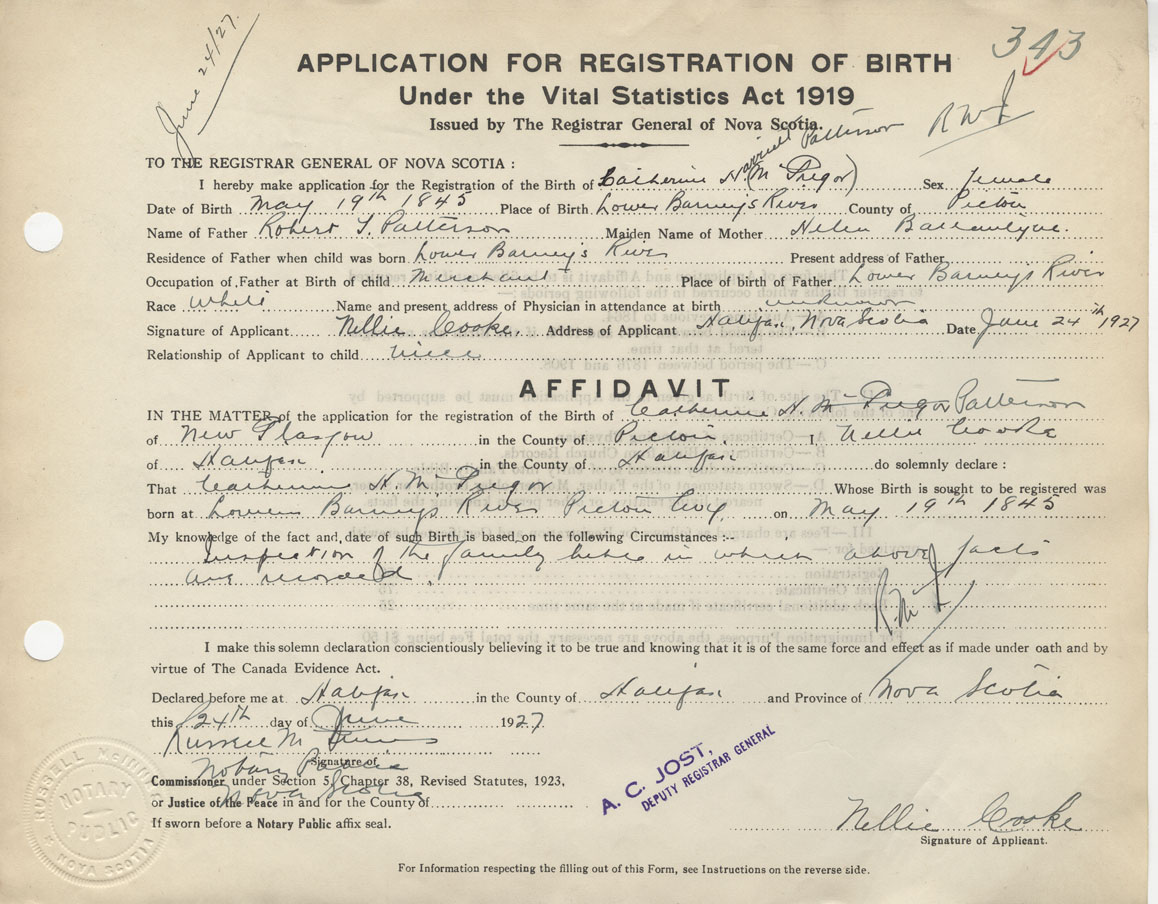 June 24/27.
343
APPLICATION FOR REGISTRATION OF BIRTH
Under the Vital Statistics Act 1919
Issued by The Registrar General of Nova Scotia.
Harriet Patterson
TO THE REGISTRAR GENERAL OF NOVA SCOTIA :
I hereby make application for the Registration of the Birth of Catherine H. (McGregor) Sex female
Date of Birth May 19th 1845 Place of Birth Lower Barney's River County of Pictou
Name of Father Robert S. Patterson Maiden Name of Mother Helen Ballantyne.
Residence of Father when child was born Lower Barney's River Present address of Father
Occupation of Father at Birth of child Merchant Place of birth of Father Lower Barney's River
Race White Name and present address of Physician in attendance at birth unknown
Signature of Applicant Nellie Cooke. Address of Applicant Halifax, Nova Scotia Date June 24th 1927
Relationship of Applicant to child niece
AFFIDAVIT
IN THE MATTER of the application for the registration of the Birth of Catherine H. McGregor Patterson
of New Glasgow in the County of Pictou, I Nellie Cooke
of Halifax in the County of Halifax do solemnly declare :
That Catherine H. McGregor Whose Birth is sought to be registered was
born at Lower Barney's River Pictou Coy. on May 19th 1845
My knowledge of the fact and date of such Birth is based on the following Circumstances :--
Inspection of the family bible in which above facts
are recorded.
I make this solemn declaration conscientiously believing it to be true and knowing that it is of the same force and effect as if made under oath and by
virtue of The Canada Evidence Act.
Declared before me at Halifax in the County of Halifax and Province of Nova Scotia
this 24th day of June 1927
Russell M
Signature of
Notary Public
Commissioner under Section 5, Chapter 38, Revised Statutes, 1923,
Nova Scotia
or Justice of the Peace in and for the County of
If sworn before a Notary Public affix seal.
A. C. JOST,
DEPUTY REGISTRAR GENERAL
Nellie Cooke
Signature of Applicant.
For Information respecting the filling out of this Form, see Instructions on the reverse side.
RUSSELL
NOTARY
PUBLIC
NOVA SCOTIA